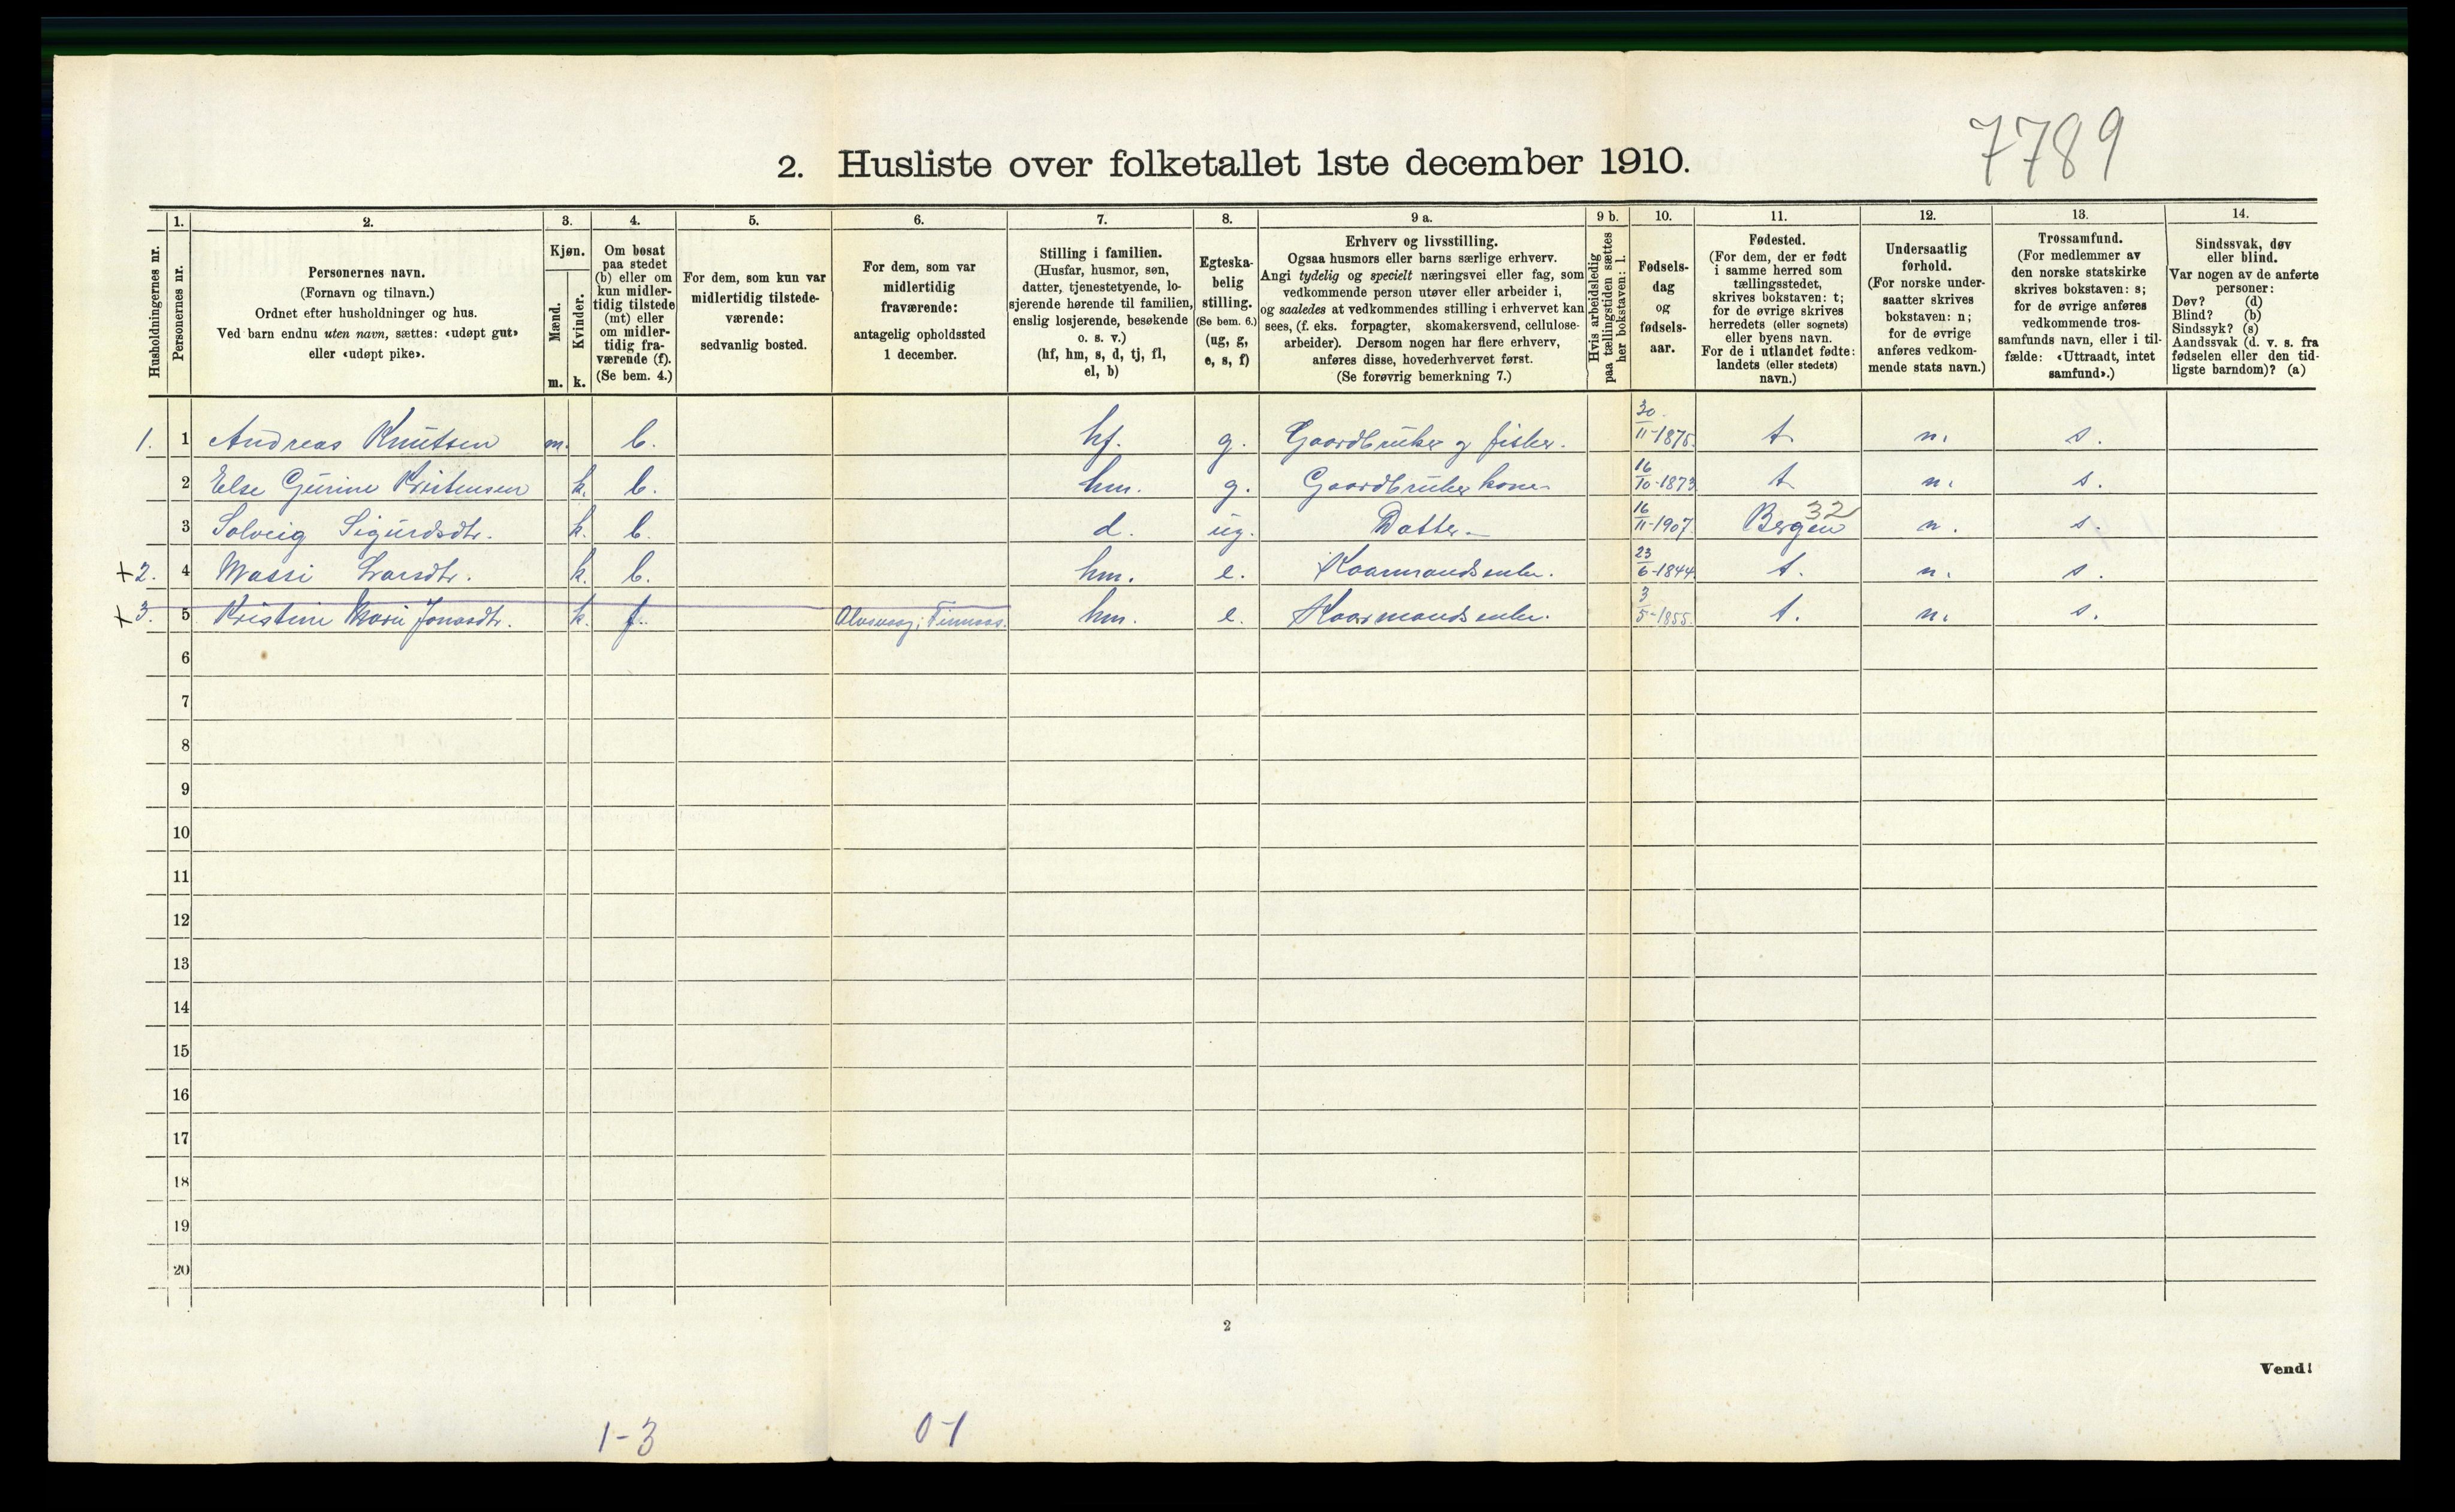 7789
2. Husliste over folketallet 1ste december 1910.
Husholdningernes nr.
1.
Personernes nr.
2.
Personernes navn.
(Fornavn og tilnavn.)
Ordnet efter husholdninger og hus.
Ved barn endnu uten navn, sættes: «udøpt gut»
eller «udøpt pike».
3.
Kjøn.
Mænd.
Kvinder.
m. k.
4.
Om bosat
paa stedet
(b) eller om
kun midler-
tidig tilstede
(mt) eller
om midler-
tidig fra-
værende (f).
(Se bem. 4.)
5.
For dem, som kun var
midlertidig tilstede-
værende:
sedvanlig bosted.
6.
For dem, som var
midlertidig
fraværende:
antagelig opholdssted
1 december.
7.
Stilling i familien.
(Husfar, husmor, søn,
datter, tjenestetyende, lo-
sjerende hørende til familien,
enslig losjerende, besøkende
o. s. v.)
(hf, hm, s, d, tj, fl,
el, b)
8.
Egteska-
belig
stilling.
(Se bem. 6.)
(ug, g,
e, s, f)
9 a.
Erhverv og livsstilling.
Ogsaa husmors eller barns særlige erhverv.
Angi tydelig og specielt næringsvei eller fag, som
vedkommende person utøver eller arbeider i,
og saaledes at vedkommendes stilling i erhvervet kan
sees, (f. eks. forpagter, skomakersvend, cellulose-
arbeider). Dersom nogen har flere erhverv,
anføres disse, hovederhvervet først.
(Se forøvrig bemerkning 7.)
9 b.
Hvis arbeidsledig
paa tællingstiden sættes
her bokstaven: l.
10.
Fødsels-
dag
og
fødsels-
aar.
11.
Fødested.
(For dem, der er født
i samme herred som
tællingsstedet,
skrives bokstaven: t;
for de øvrige skrives
herredets (eller sognets)
eller byens navn.
For de i utlandet fødte:
landets (eller stedets)
navn.)
12.
Undersaatlig
forhold.
(For norske under-
saatter skrives
bokstaven: n;
for de øvrige
anføres vedkom-
mende stats navn.)
13.
Trossamfund.
(For medlemmer av
den norske statskirke
skrives bokstaven: s;
for de øvrige anføres
vedkommende tros-
samfunds navn, eller i til-
fælde: «Uttraadt, intet
samfund».)
14.
Sindssvak, døv
eller blind.
Var nogen av de anførte
personer:
Døv? (d)
Blind? (b)
Sindssyk? (s)
Aandssvak (d. v. s. fra
fødselen eller den tid-
ligste barndom)? (a)
1. 1 Andreas Knutsen m. b. hf. g. Gaardbruker og fisker. 30/11-1875. t. n. s.
2 Else Gurine Kristensen k. b. hm. g. Gaardbruker kone 16/10-1873 t n. s.
3 Solveig Sigurdsdtr. k. b. d. ug. Datter 16/11-1907 Bergen 32 n. s.
+2. 4 Massi Larsdtr. k. b. hm. e. Kaarmandsenke. 23/6-1844 t. n. s.
+3. 5 Kristine Marie Jonasdtr. k. f. hm. e. Kaarmandsenke. 3/5-1855. t. n. s.
6
7
8
9
10
11
12
13
14
15
16
17
18
19
20
2
Vend!
1-3 0-1